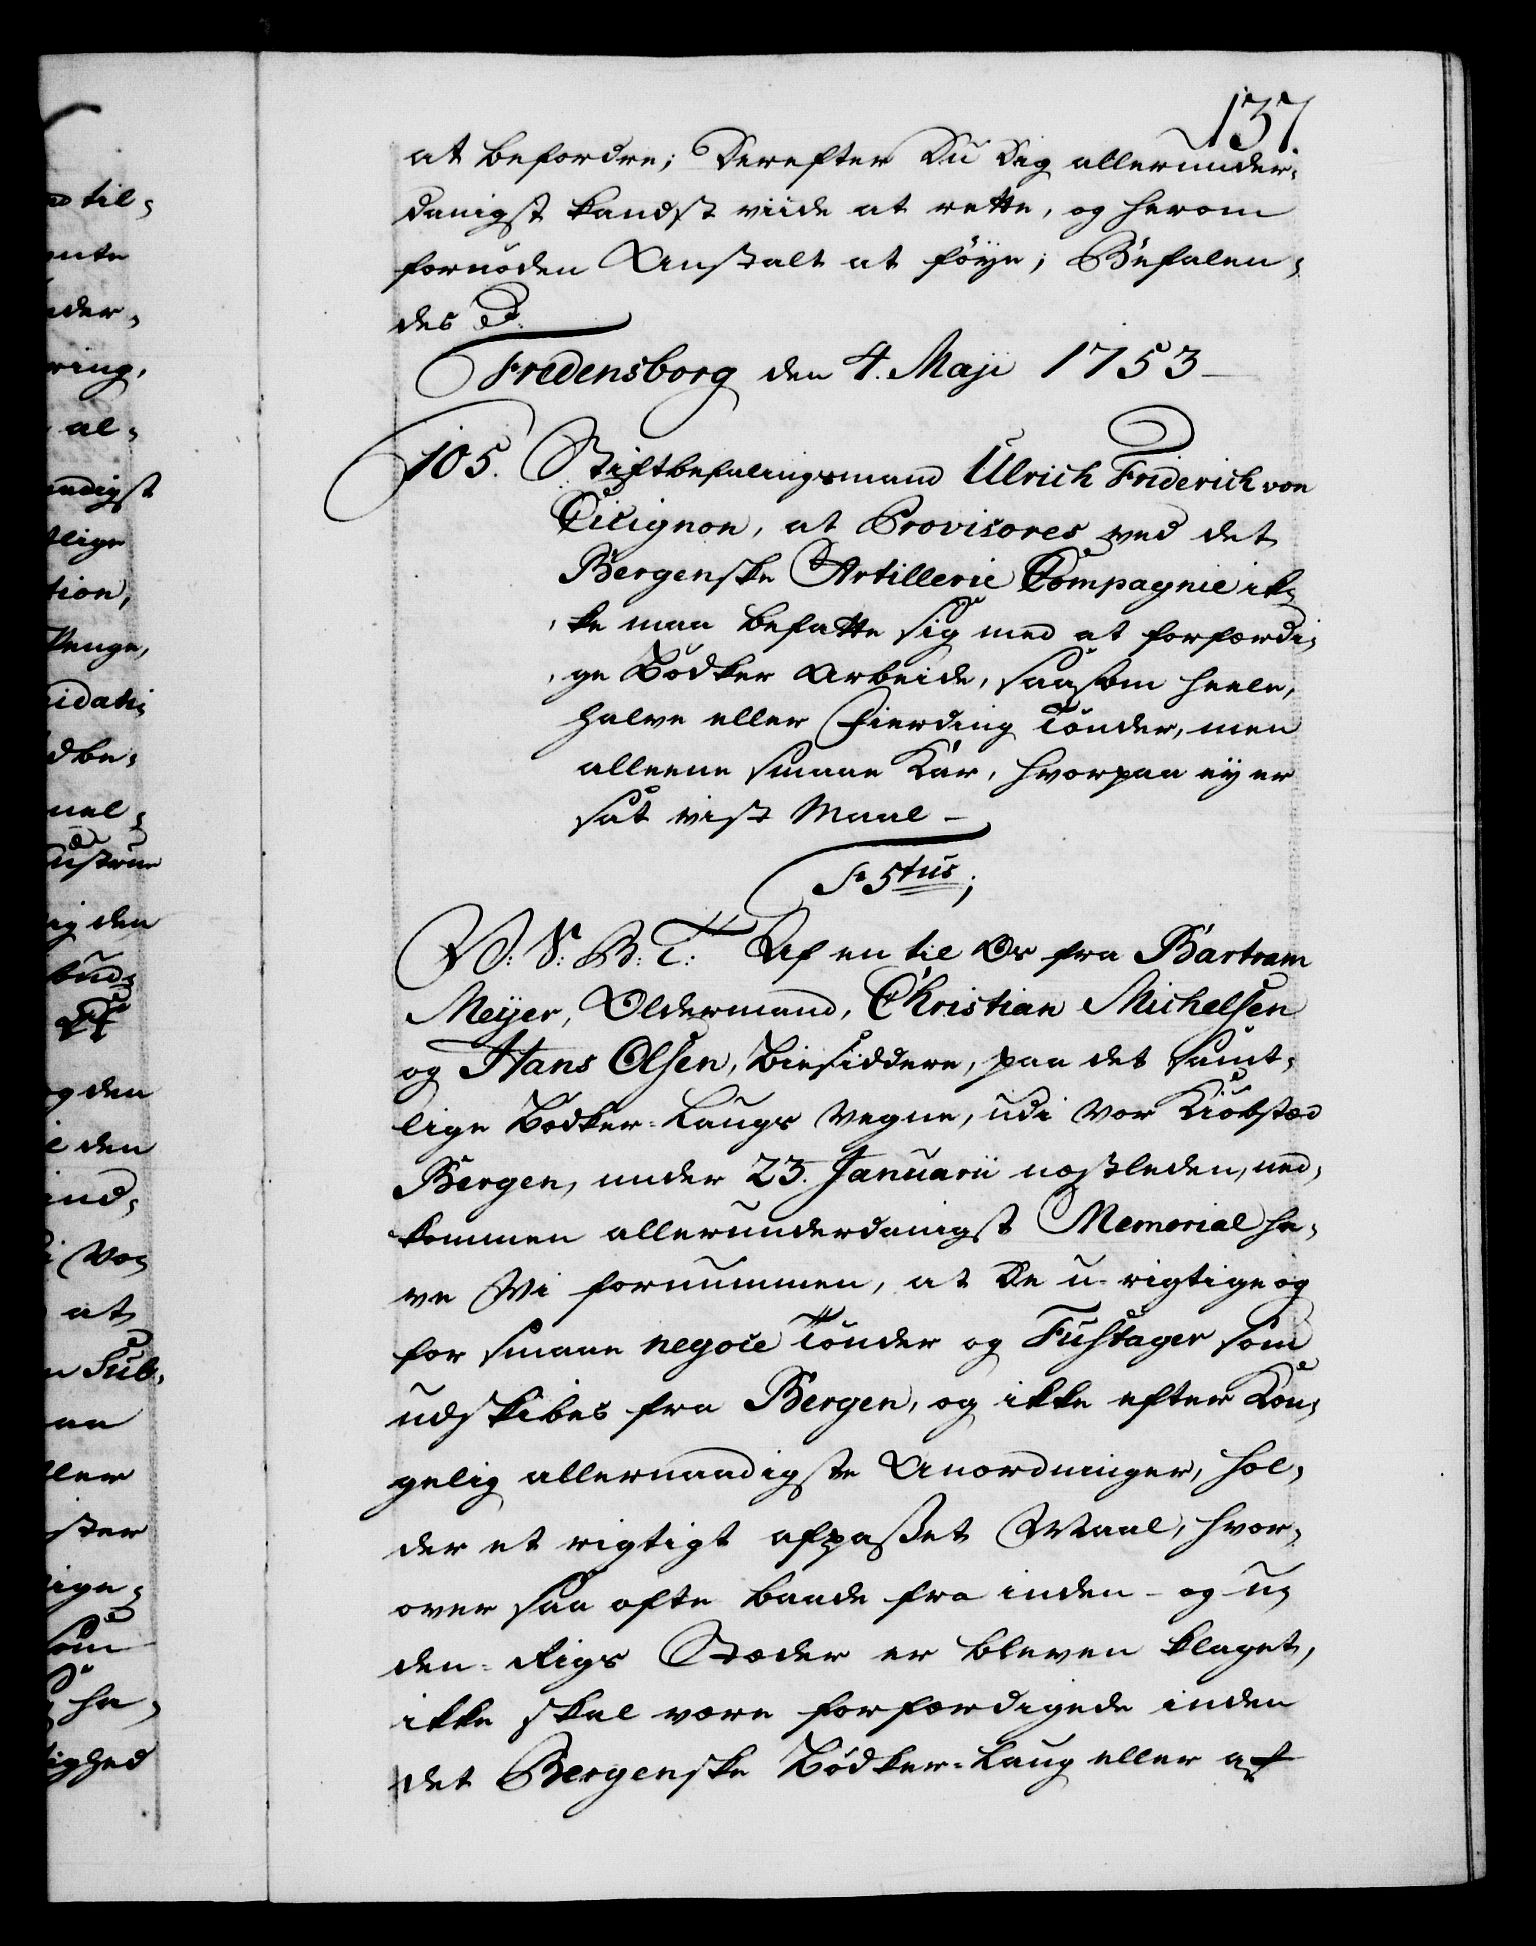 137.
at befordre; Derefter Du Dig allerunder-
danigst kandst viide at rette, og herom
fornöden Anstalt at föye; Befalen-
des
Fredensborg den 4. Maji 1753
105. Stiftbefalingsmand Ulrich Friderich von
Cicignon, at Provisores ved det
Bergenske Artillerie Compagnie ik-
ke maa befatte sig med at forfærdi-
ge Bödker Arbeide, saasom heele,
halve eller Fierding Tönder, men
alleene smaae Kar, hvorpaa ey er
sat vist Maal –
F 5tus;
V: S: B: T: Af en til Os fra Bartram
Meÿer, Oldermand, Christian Michelsen
og Hans Olsen, Biesiddere, paa det samt-
lige Bödker-Laugs Vegne, udi Vor Kiöbstæd
Bergen, under 23. Januarii næstleden, ind-
kommen allerunderdanigst Memorial ha-
ve Vi fornummen, at De u-rigtige og
for smaae negoce Tönder og Fustager som
udskibes fra Bergen, og ikke efter Kon-
gelig allernaadigste Anordninger, hol-
der et rigtigt afpasset Maal, hvor-
over saa ofte baade fra inden- og u-
den-Rigs Stæder er bleven klaget,
ikke skal være forfærdigede inden
det Bergenske Bödker-Laug eller af
til-
ring,
al-
tion,
Penge,
idati-
dbe-
nel-
ig den
bud-
og den
den
ind-
Vo-
at
Sub-
ige-
som
ha-
ighed